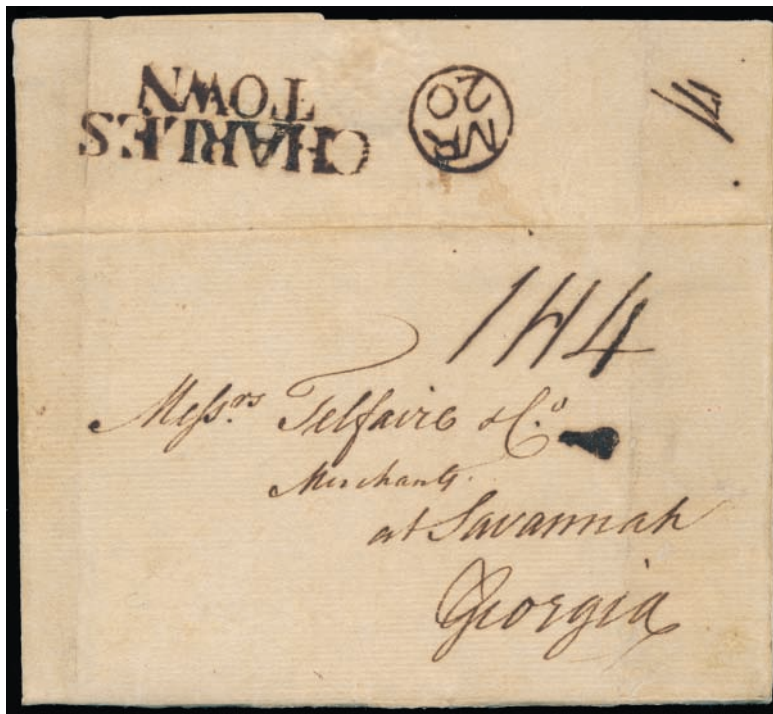 CHARLES
TOWN
MR
20
1H4
Mess.rs Telfair & C.o
Merchants.
at Savannah
Georgia